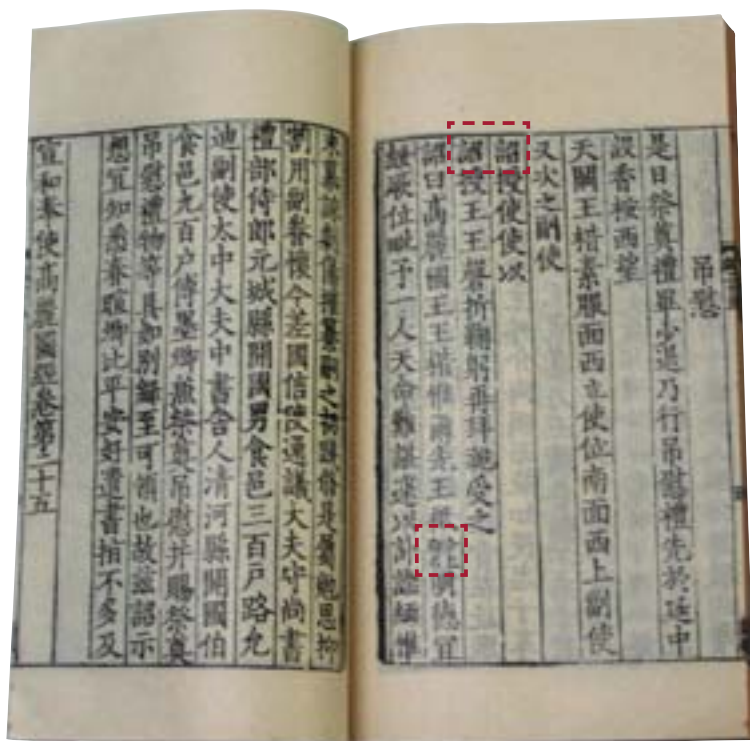 吊慰
是日祭奠禮畢少退乃行吊慰禮先於庭中
設香桉西望
天闕王楷素服面西立使位南面西上副使
又次之副使
詔授使使以
詔授王王磬折鞠躬再拜跪受之
詔曰高麗國王王楷惟爾先王明德宜
綏厥位毗予一人天命難諶遽以訃諗緬惟
永慕諒劇傷摧纂嗣之初是賴勉思抑
割用副眷懷今差國信使通議大夫守尚書
禮部侍郎元城縣開國男食邑三百戶路允
迪副使太中大夫中書舍人清河縣開國伯
食邑九百戶傅墨卿兼祭奠吊慰并賜祭奠
吊慰禮物等具如別録至可領也故茲詔示
想宜知悉春暄卿比平安好遣書指不多及
宣和奉使高麗圖經卷第二十五